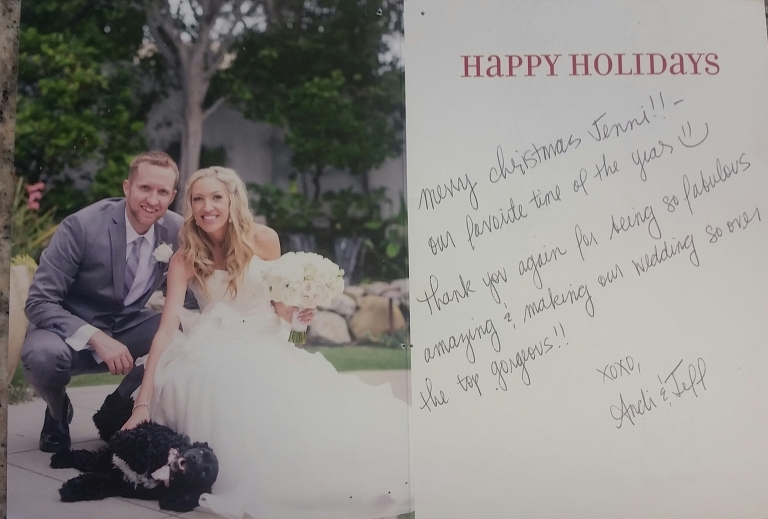 HAPPY HOLIDAYS
Merry Christmas Jenni!! -
our favorite time of the year :)
Thank you again for being so fabulous
amazing & making our wedding so over
the top gorgeous!!
xoxo,
Andi & Jeff